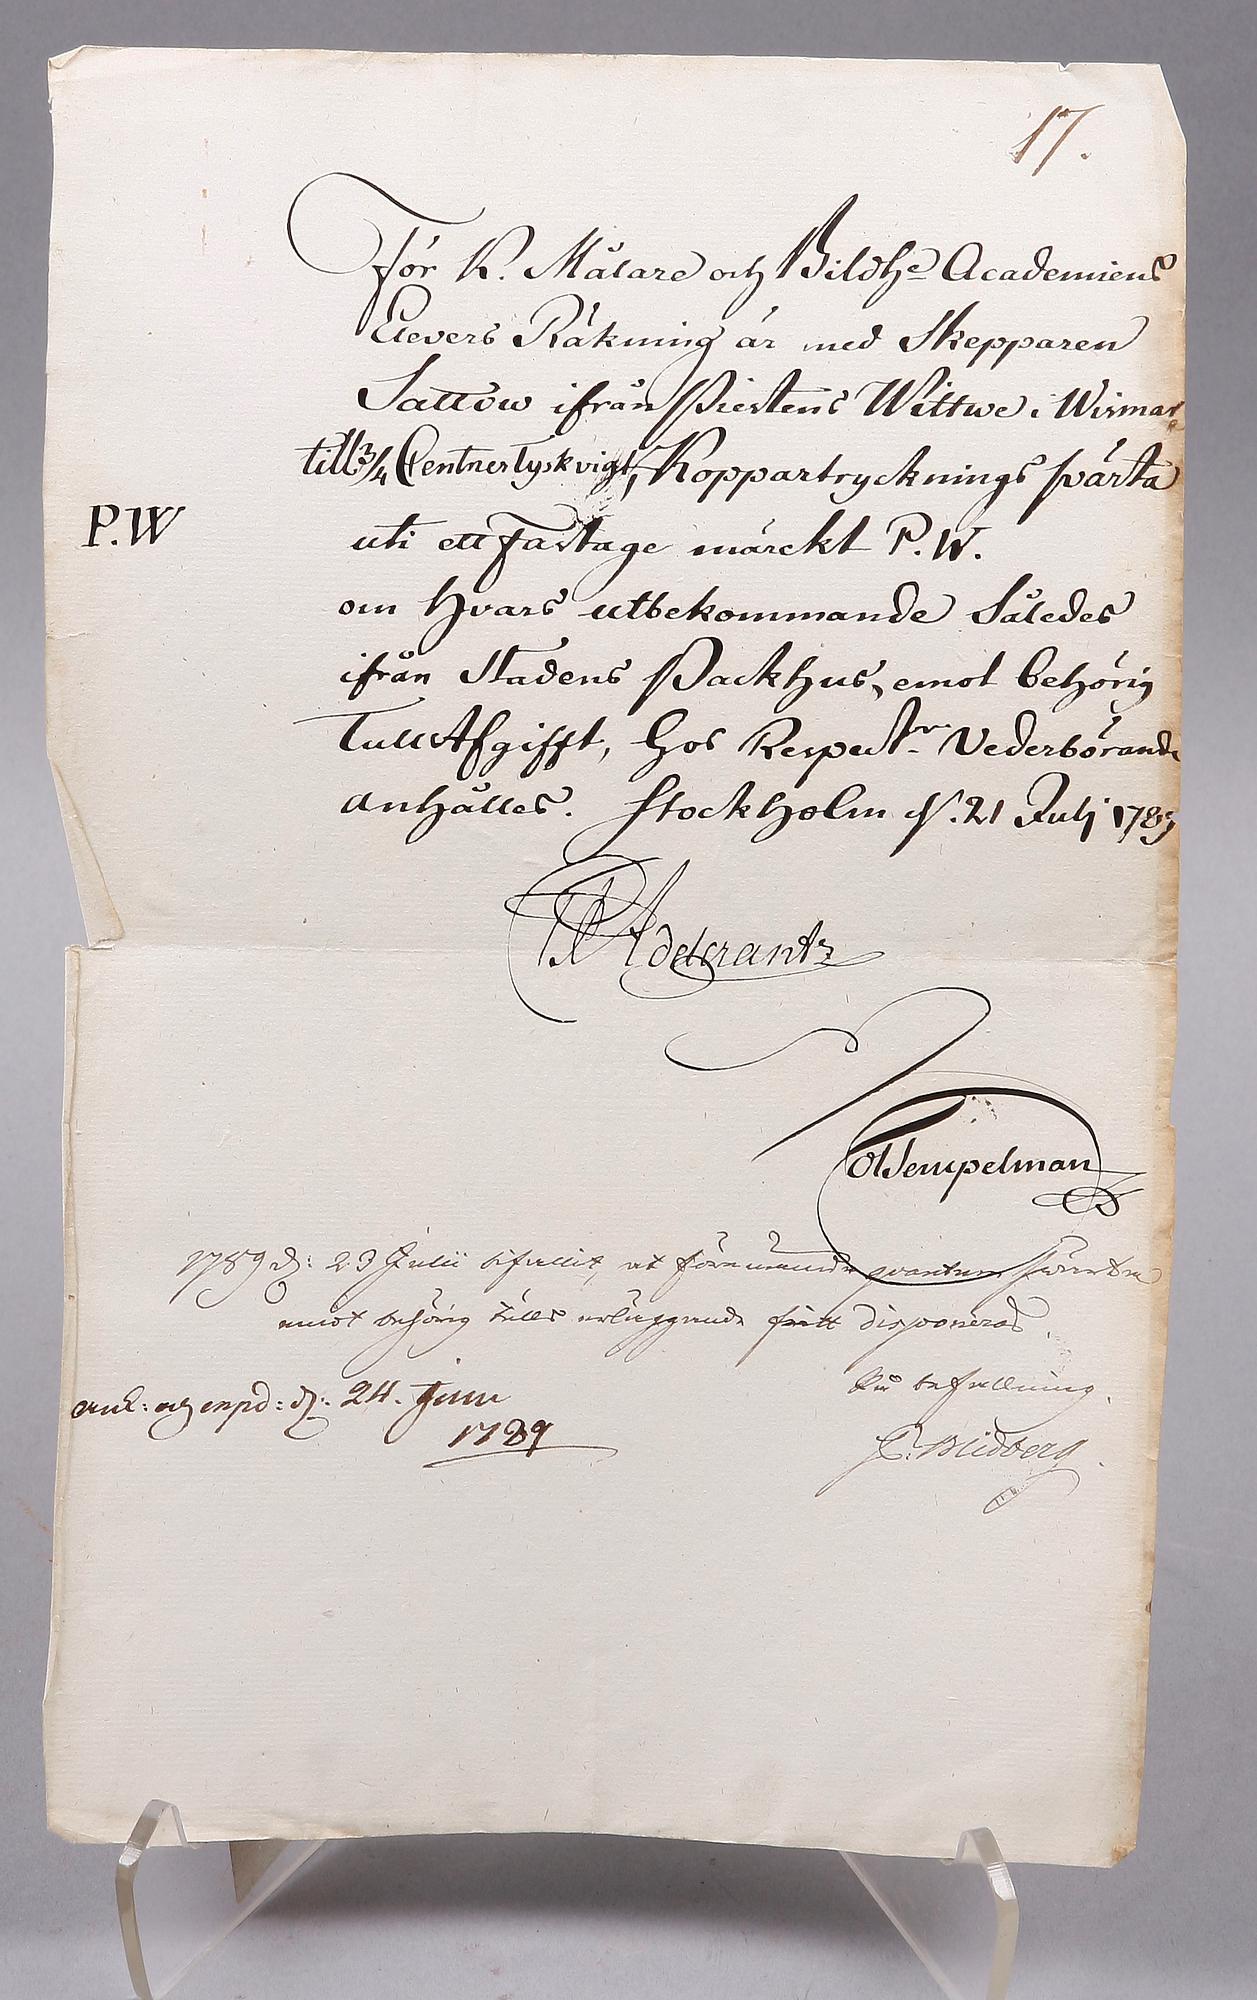 17.
För K. Målare och Bildh. Academiens
Elevers Räkning är med Skepparen
Sattow ifrån Wittwe i Wismar
till 3/4 Centner tysk vigt, Koppartrycknings svärta
P.W
uti ett Fastage märckt P.W.
om hvars utbekommande Således
ifrån Stadens Packhus, emot behörig
Tull Afgifft, hos Respect. Vederbörande
anhålles. Stockholm d. 21 Julj 1789
Adelcrantz
OTempelman
1789 d: 23 Julii bifallit, at förenämnde quantum svärta
emot behörig tulls erläggande fritt disponeras.
På befallning.
ank: och exped: d: 24. Juni
1789